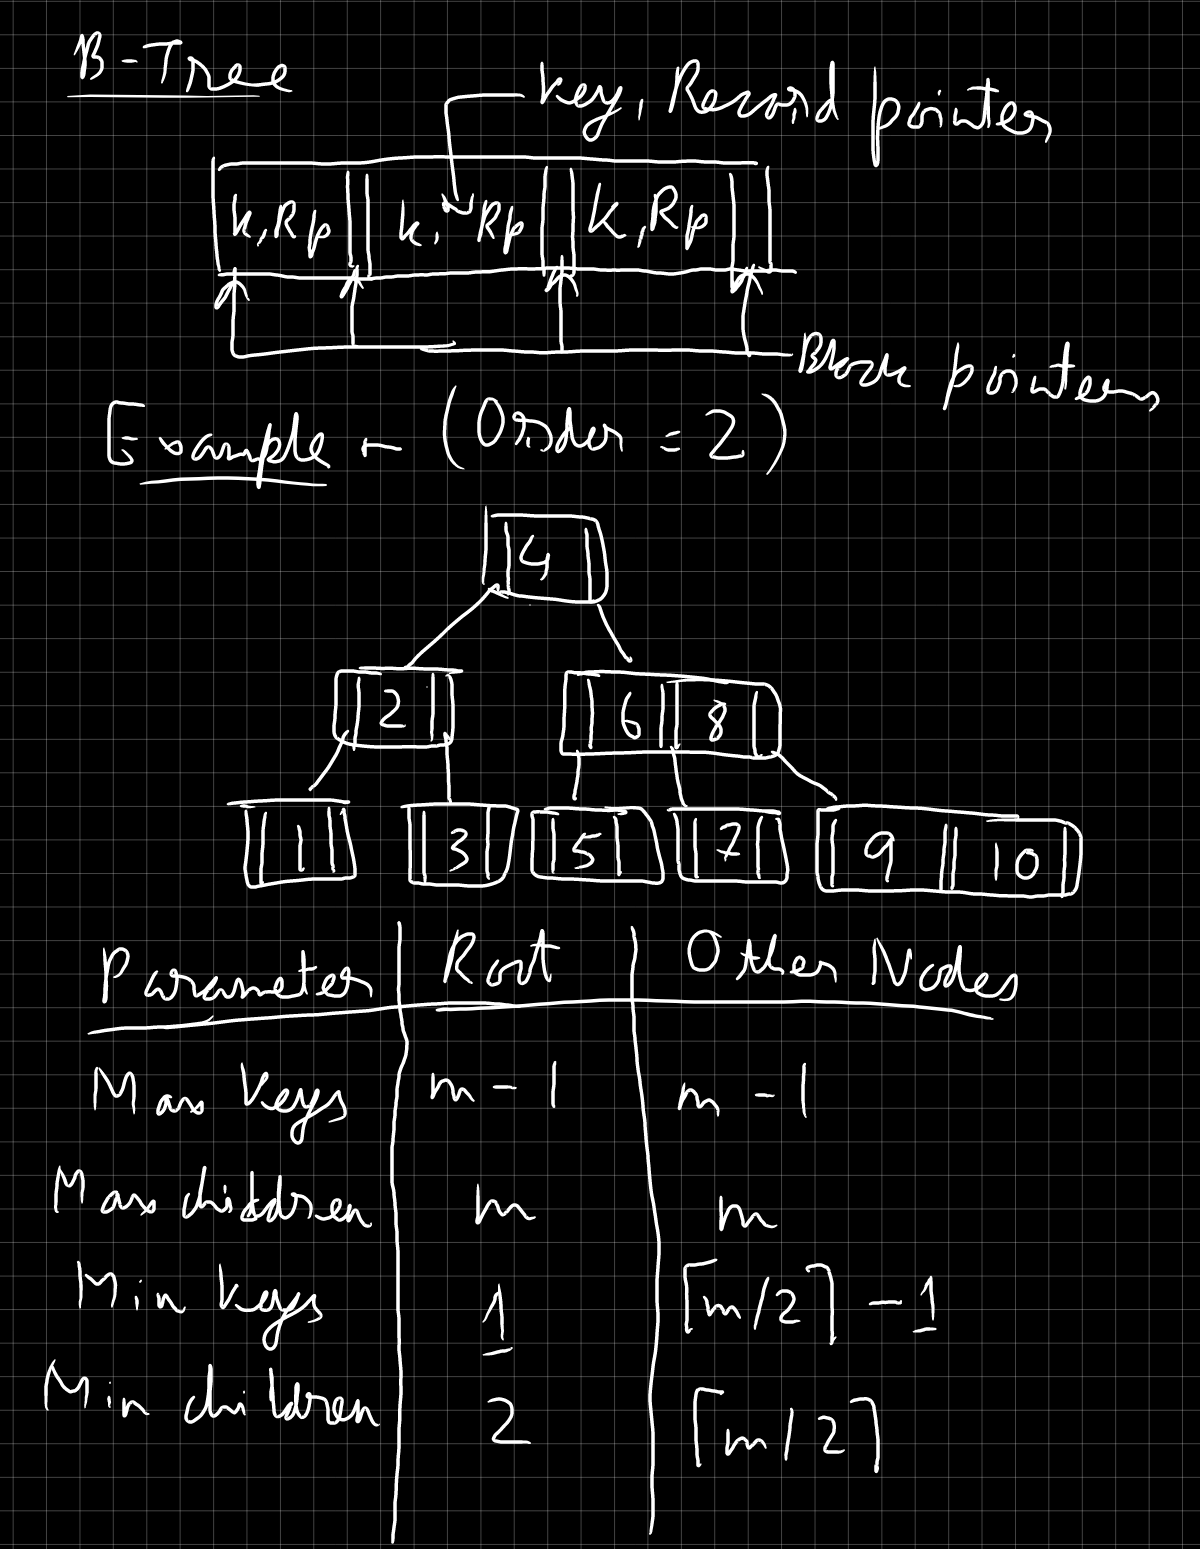 B-Tree
key, Record pointer
k,Rp k, Rp k,Rp
Block pointers
Example - (Order = 2)
4
2 6 8
1 3 5 7 9 10
Parameter Root Other Nodes
Max keys m - 1 m - 1
Max children m m
Min keys 1 ⌈m/2⌉ - 1
Min children 2 ⌈m/2⌉